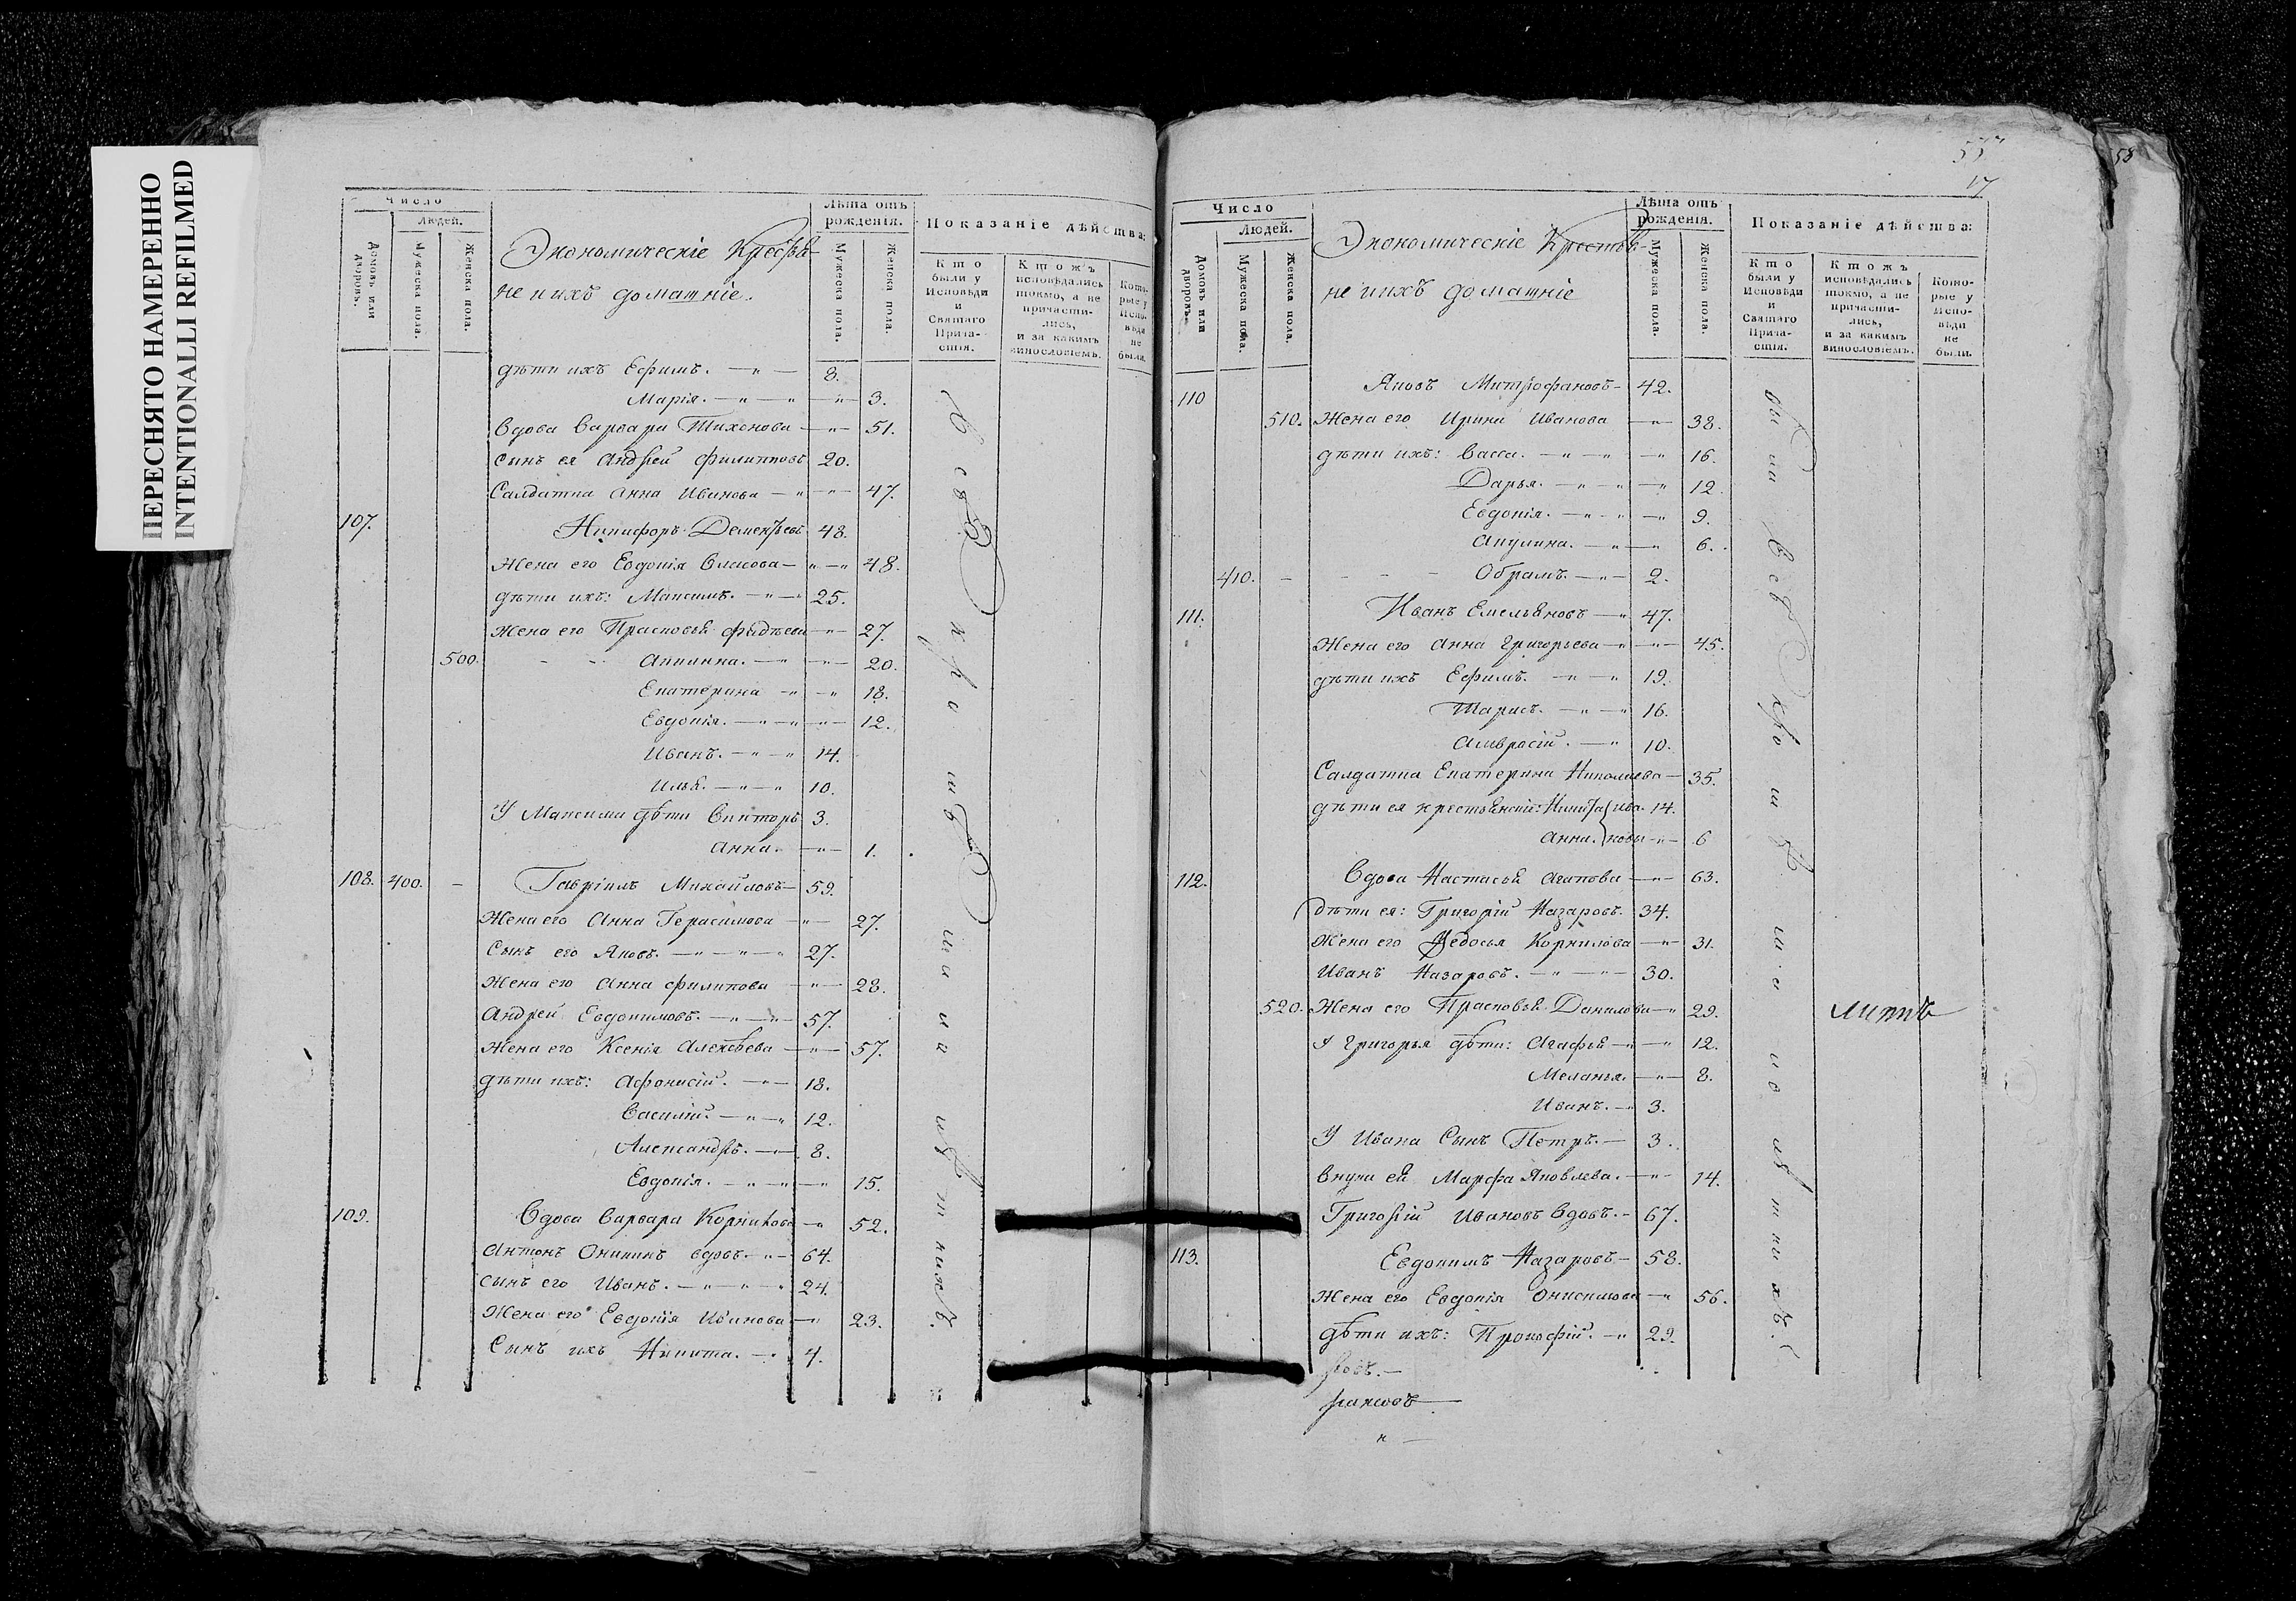 ПЕРЕСНЯТО НАМЕРЕННО
INTENTIONALLI REFILMED
Число
Людей.
Домовъ или дворовъ.
Мужеска пола.
Женска пола.
Экономическіе Крестья-
не и ихъ домашніе.
Лѣта отъ рожденія.
Мужеска пола.
Женска пола.
Показаніе дѣйства:
Кто были у Исповѣди и Святаго Причастія.
Ктожъ исповѣдались токмо, а не причастились, и за какимъ винословіемъ.
Которые у Исповѣди не были.
дѣти ихъ Ефимъ. — " — 8.
Марія. — " — " — " — 3.
Вдова Варвара Тихонова — " — 51.
Сынъ ея Андрей Филиповъ 20.
Салдатка Анна Иванова — " — " — 47.
107. Никифоръ Дементьевъ 48.
Жена его Евдокія Власова — " — " 48.
дѣти ихъ: Максимъ. — " — " 25.
Жена его Прасковья Фадѣева — " — 27.
500. Акилина. — " — " — 20.
Екатерина — " — " 18.
Евдокія. — " — " — " — 12.
Иванъ. — " — " 14.
Илья. — " — " 10.
У Максима дѣти Викторъ 3.
Анна. — " — 1.
108. 400. — Гавріилъ Михайловъ — 59.
Жена его Анна Герасимова — " — 27.
Сынъ его Яковъ. — " — " — " 27.
Жена его Анна Филипова — " — 28.
Андрей Евдокимовъ. — " — " — 57.
Жена его Ксенія Алексѣева — " — 57.
дѣти ихъ: Афонасій. — " — 18.
Василій. — " — " 12.
Александръ. — " — 8.
Евдокія. — " — " — " 15.
109. Вдова Варвара Корнилова — " 52.
Антонъ Оникинъ вдовъ. — " — 64.
Сынъ его Иванъ. — " — " — " 24.
Жена его Евдокія Иванова — " 23.
Сынъ ихъ Никита. — " 4.
Всѣ кромѣ малолѣтнихъ.
58
17
Число
Людей.
Домовъ или дворовъ.
Мужеска пола.
Женска пола.
Экономическіе Крестья-
не и ихъ домашніе
Лѣта отъ рожденія.
Мужеска пола.
Женска пола.
Показаніе дѣйства:
Кто были у Исповѣди и Святаго Причастія.
Ктожъ исповѣдались токмо, а не причастились, и за какимъ винословіемъ.
Которые у Исповѣди не были.
110 Яковъ Митрофановъ — 42.
510. Жена его Ирина Иванова — " — 38.
дѣти ихъ: Васса. — " — " — " 16.
Дарья. — " — " — " 12.
Евдокія. — " — " — " 9.
Акулина. — " — " 6.
410. — Обрамъ. — " — 2.
111. Иванъ Емельяновъ — " 47.
Жена его Анна Григорьева — " — " — 45.
дѣти ихъ Ефимъ. — " — " 19.
Тарасъ. — " — " 16.
Амвросій. — " 10.
Салдатка Екатерина Николаева — 35.
дѣти ея крестьянскіе: Никита} Ива- 14.
Анна.} новы — " — 6
112. Вдова Настасья Агапова — " — 63.
дѣти ея: Григорій Назаровъ. 34.
Жена его Ѳедосья Корнилова — " — 31.
Иванъ Назаровъ. — " — " — 30.
520. Жена его Прасковья Данилова — " 29.
У Григорья дѣти: Агафья — " — " 12.
Меланья. — " — 8.
Иванъ. — " 3.
У Ивана Сынъ Петръ. — 3.
внука ея Марфа Яковлева. — " — 14.
Григорій Ивановъ Вдовъ. — 67.
113. Евдокимъ Назаровъ — 58.
Жена его Евдокія Онисимова — " 56.
дѣти ихъ: Прокофій. — " 29.
были Всѣ кромѣ малолѣтнихъ.